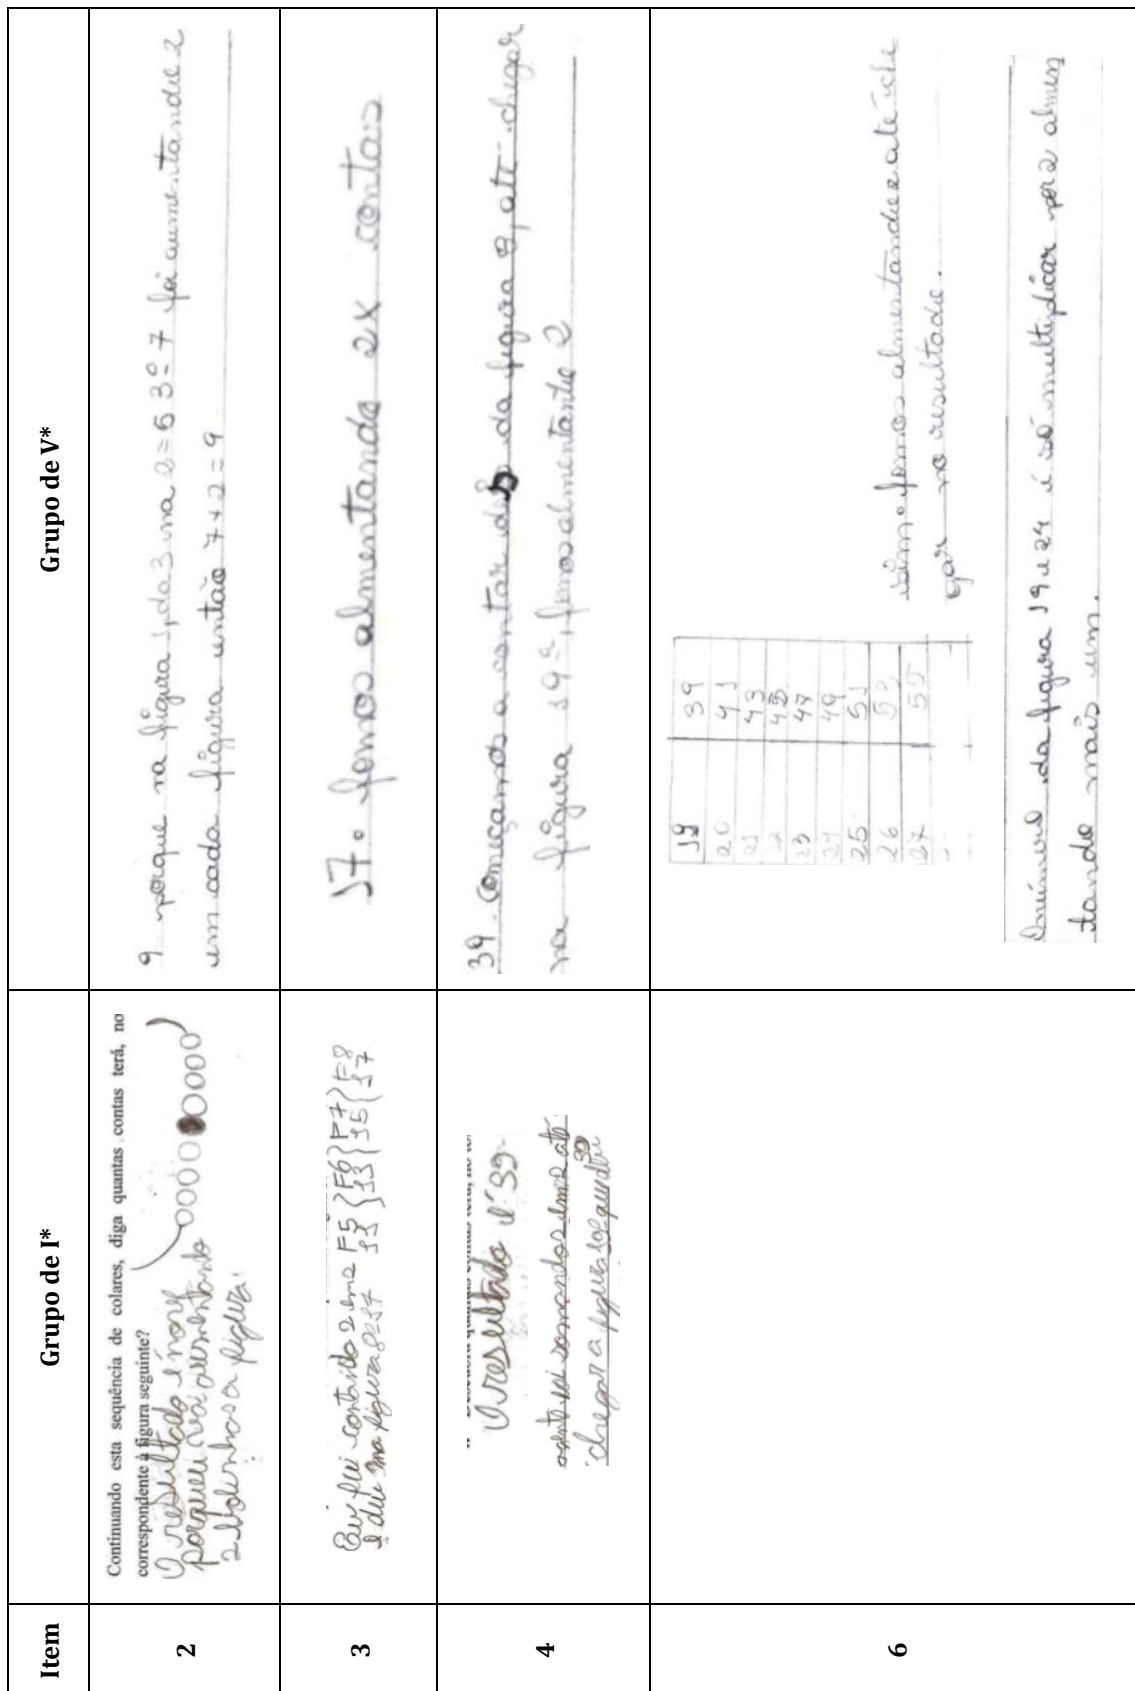 Item
Grupo de I*
Grupo de V*
2
Continuando esta sequência de colares, diga quantas contas terá, no
correspondente à figura seguinte?
O resultado é nove
porque vai aumentando
2 bolinhas a figura.
9 porque na figura 1, da 3 na 2=5 3º=7 foi aumentando 2
em cada figura então 7+2=9
3
Eu fui contando 2 em 2 F5 } F6 } F7 } F8
e deu na figura 8=17 11 } 13 } 15 } 17
17. fomos almentando 2x contas
4
O resultado é 39
somandos em 2 até
chegar a figura 19 que deu 39
39. Começamos a contar da figura 8, até chegar
na figura 19ª, fomos almentando 2
6
19 39
20 41
21 43
22 45
23 47
24 49
25 51
26 53
27 55
sim. fomos almentando 2 até che
gar no resultado.
O número da figura 19 e 24 é só multiplicar por 2 almen
tando mais um.